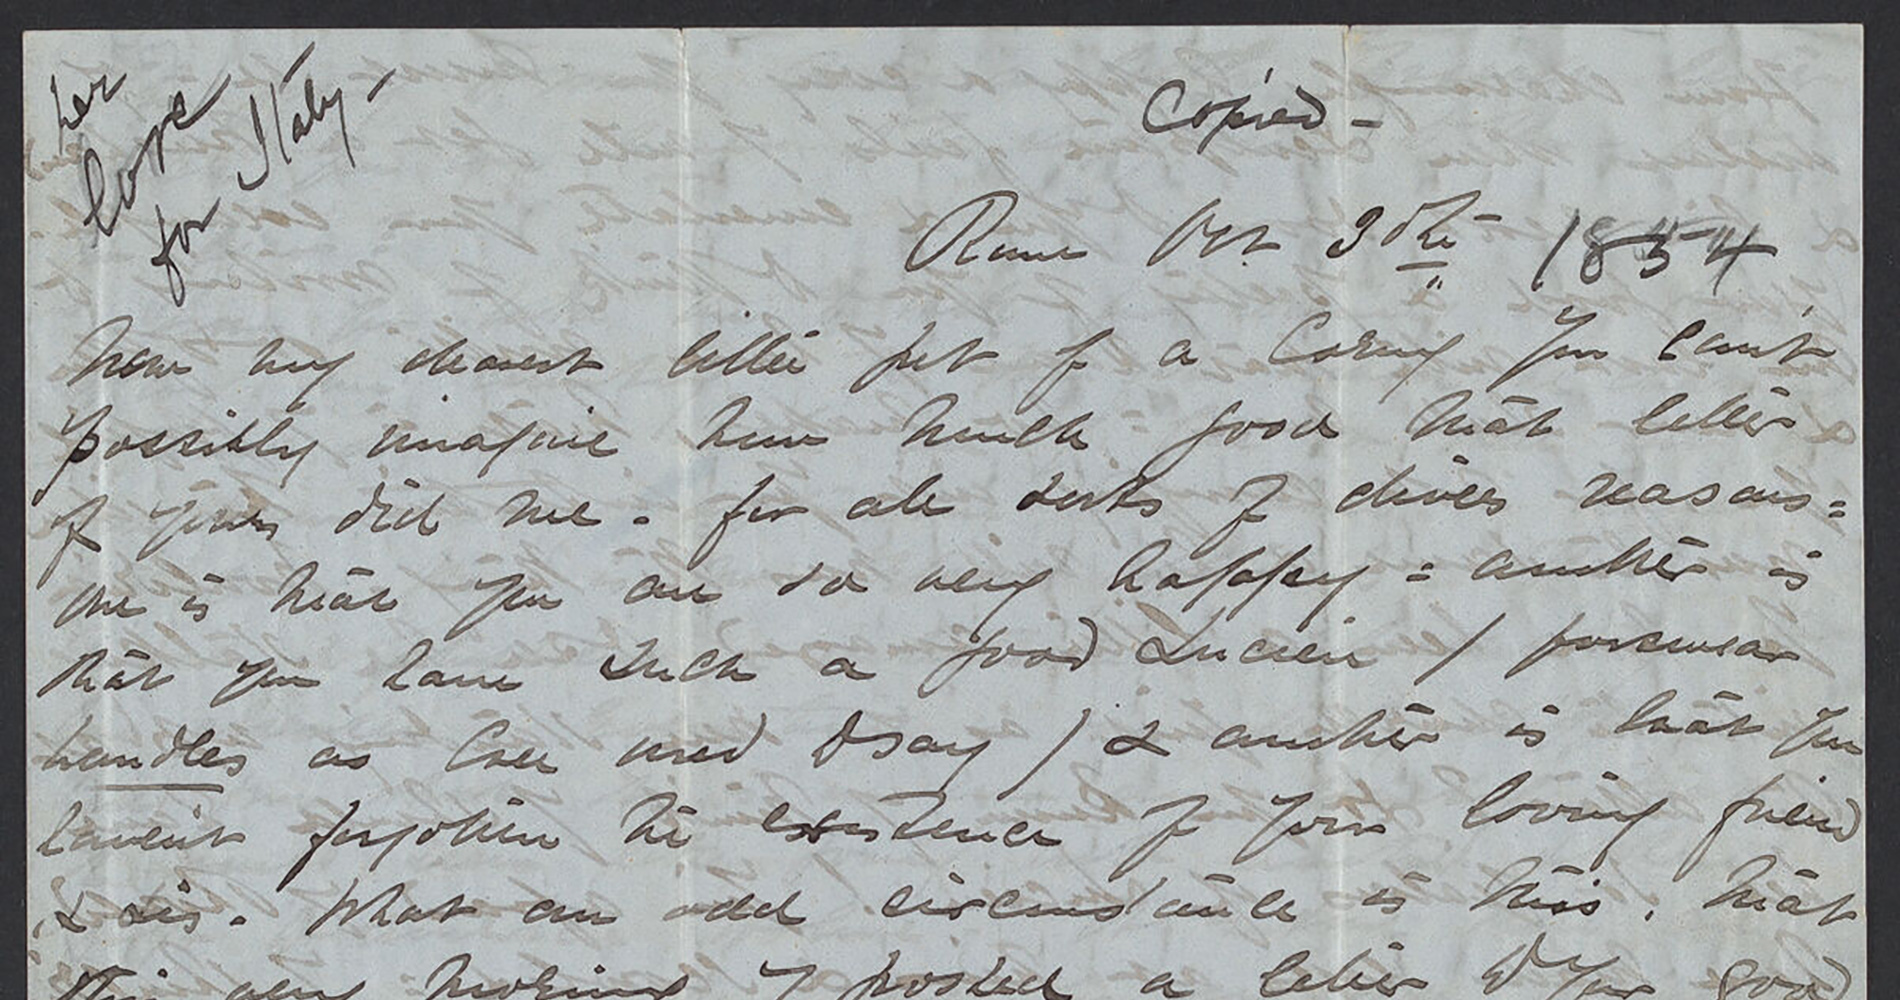 her
love
for Italy -
Copied -
Rome Oct 30th 1854
Now my dearest little pet of a Corny you can't
possibly imagine how much good that letter
of yours did me. for all sorts of divers reasons =
one is that you are so very happy = another is
that you have such a good Lucien / forswear
handles as Coee used to say / & another is that you
haven't forgotten the existence of your loving friend
& sis. What an odd circumstance is this. that
this very morning I posted a letter to your good